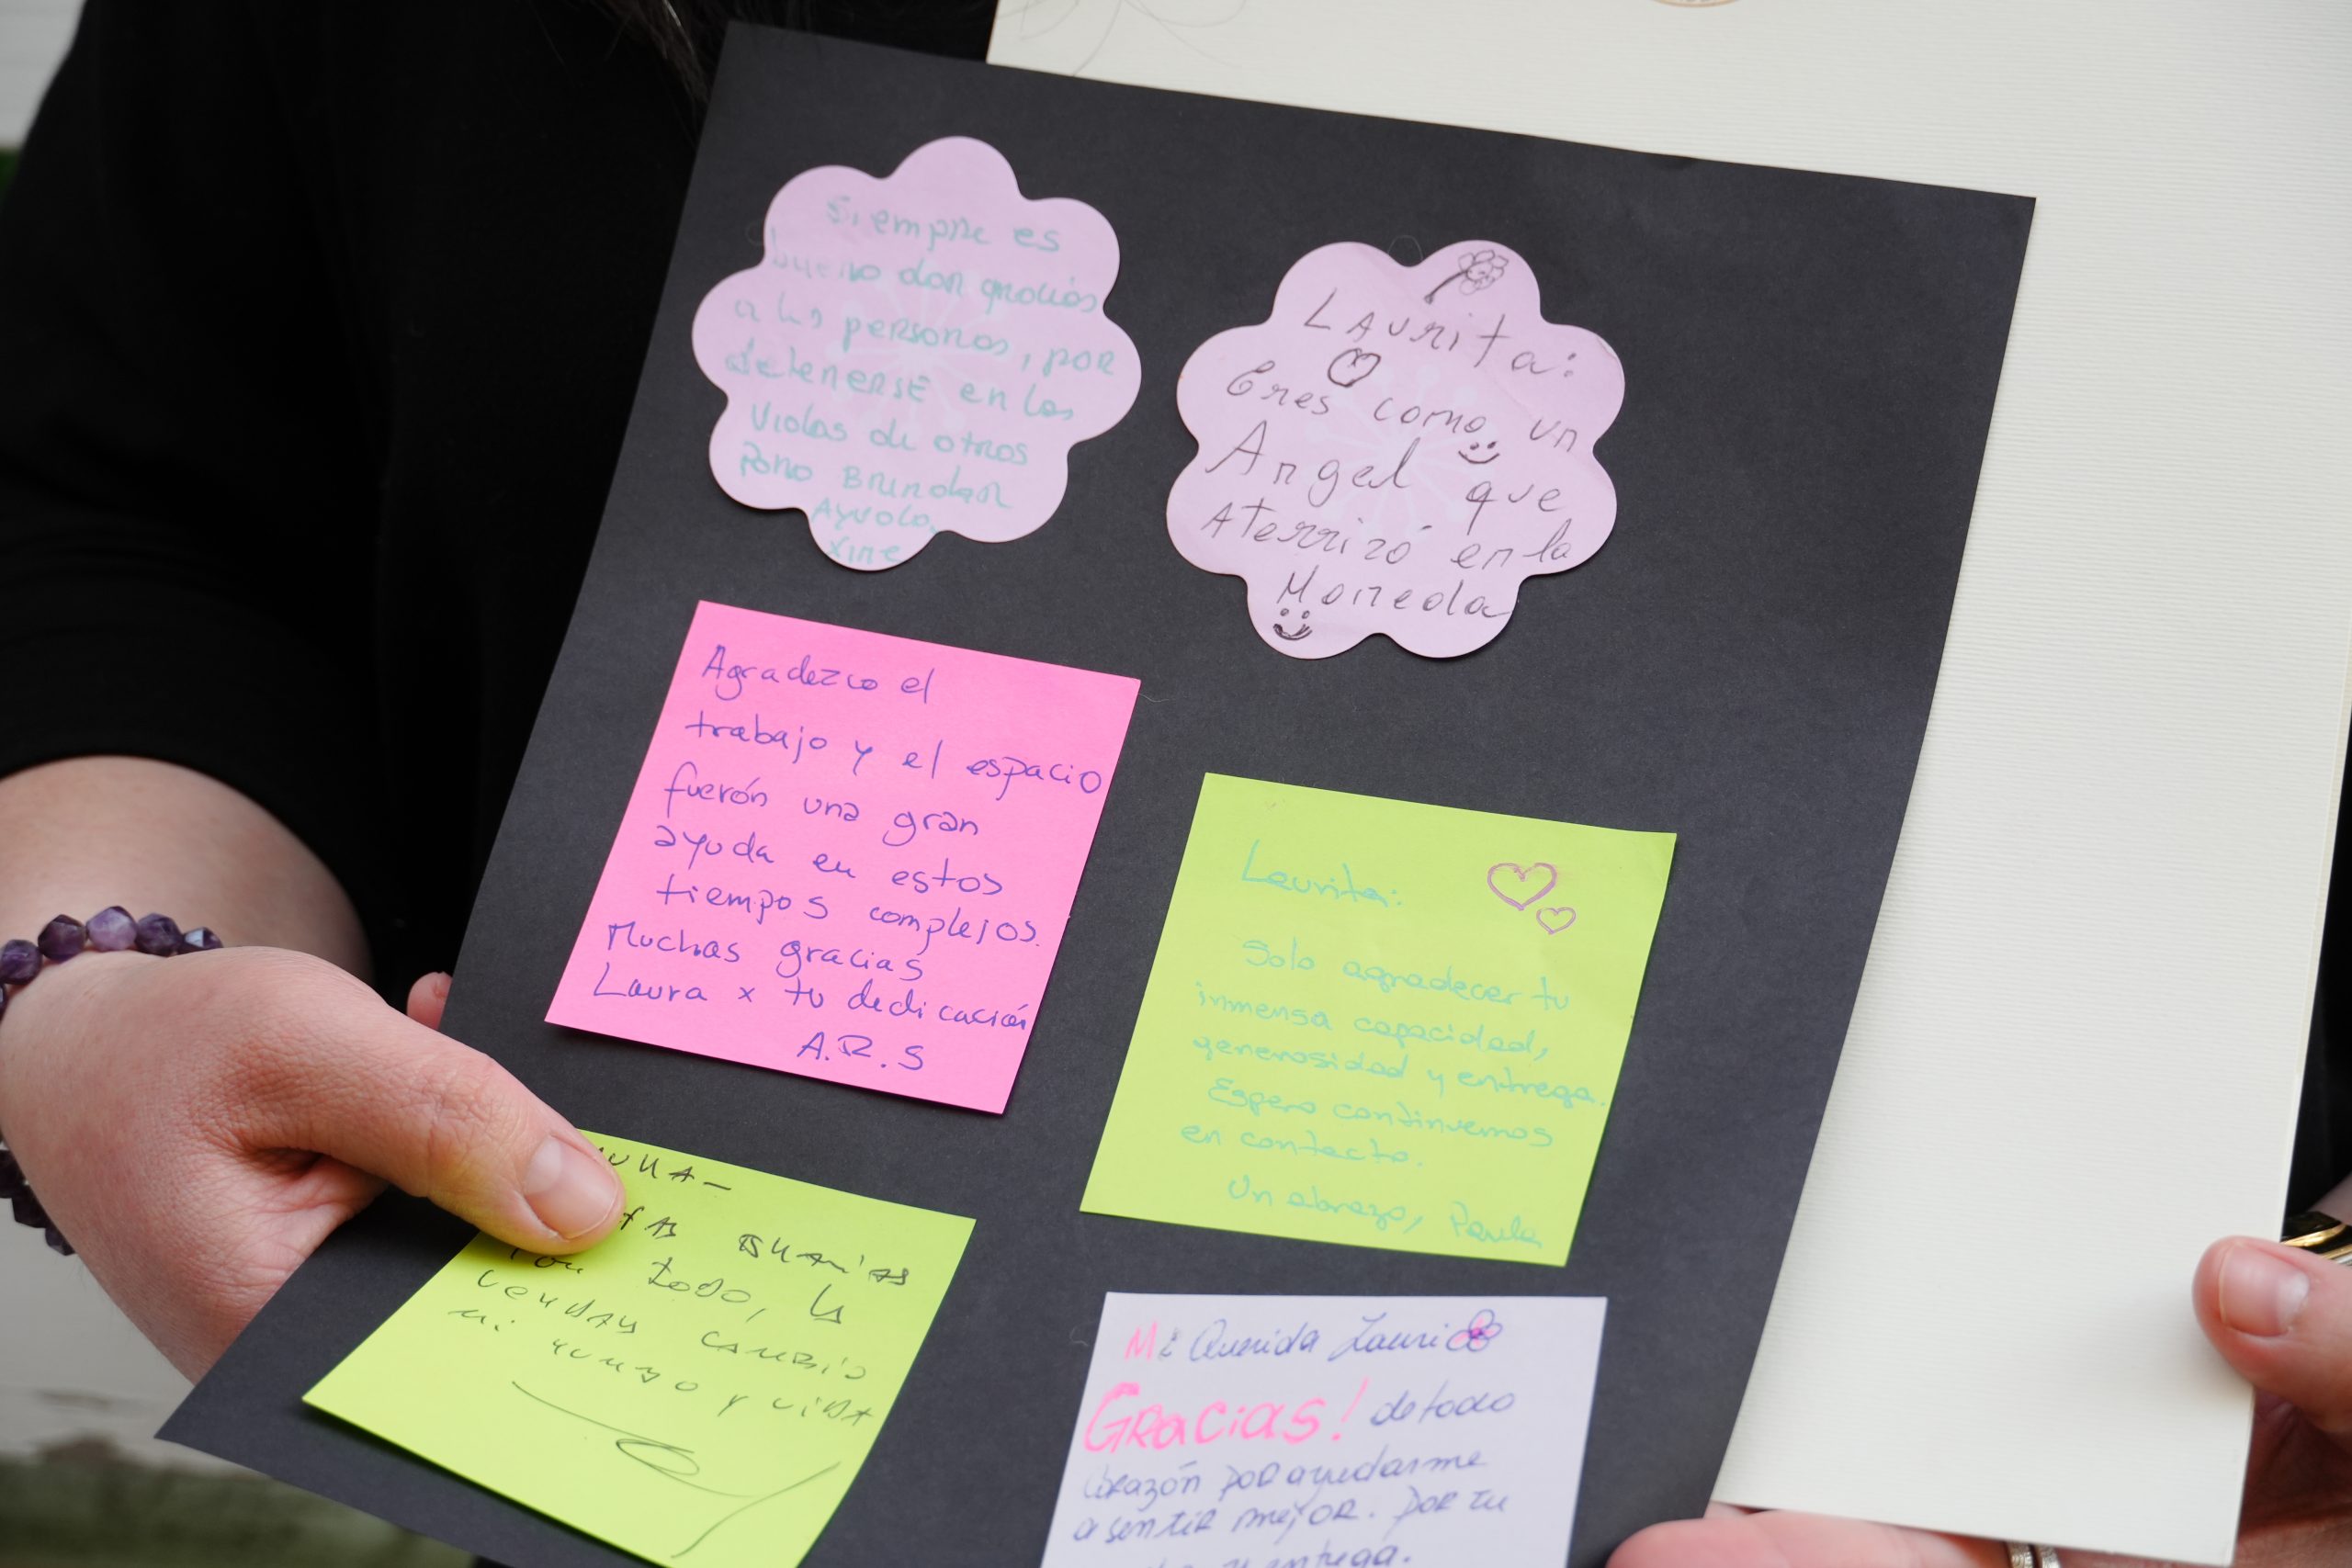 Siempre es
bueno dar gracias
a las personas, por
detenerse en las
vidas de otros
Para Brindar
Ayuda,
Xime
Laurita:
Eres como un
Angel que
Aterrizó en la
Moneda
Agradezco el
trabajo y el espacio
fuerón una gran
ayuda en estos
tiempos complejos.
Muchas gracias
Laura x tu dedicación
A.R.S
Laurita:
Solo agradecer tu
inmensa capacidad,
generosidad y entrega.
Espero continuemos
en contacto.
Un abrazo, Paula
GRACIAS
Por TODO, la
CAMBIO
mi y VIDA
Mi Querida Lauri
GRACIAS! de todo
corazón por ayudarme
a sentir mejor. Por tu
y entrega.